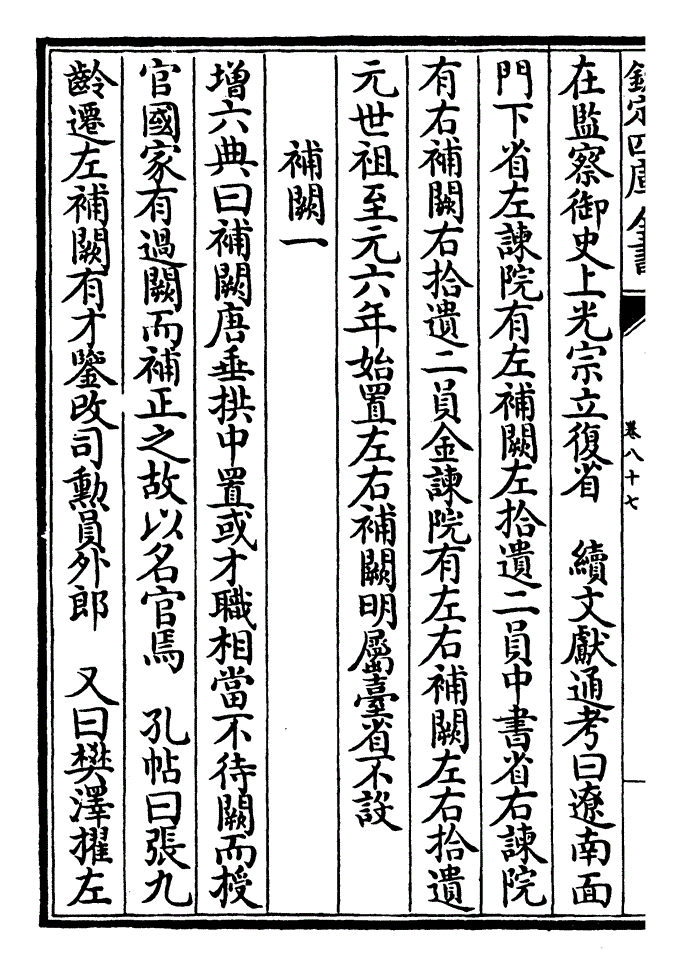 欽定四庫全書
卷八十七
在監察御史上光宗立復省　續文獻通考曰遼南面
門下省左諫院有左補闕左拾遺二員中書省右諫院
有右補闕右拾遺二員金諫院有左右補闕左右拾遺
元世祖至元六年始置左右補闕明屬臺省不設
補闕一
增六典曰補闕唐垂拱中置或才職相當不待闕而授
官國家有過闕而補正之故以名官焉　孔帖曰張九
齡遷左補闕有才鑒改司勳員外郎　又曰樊澤擢左